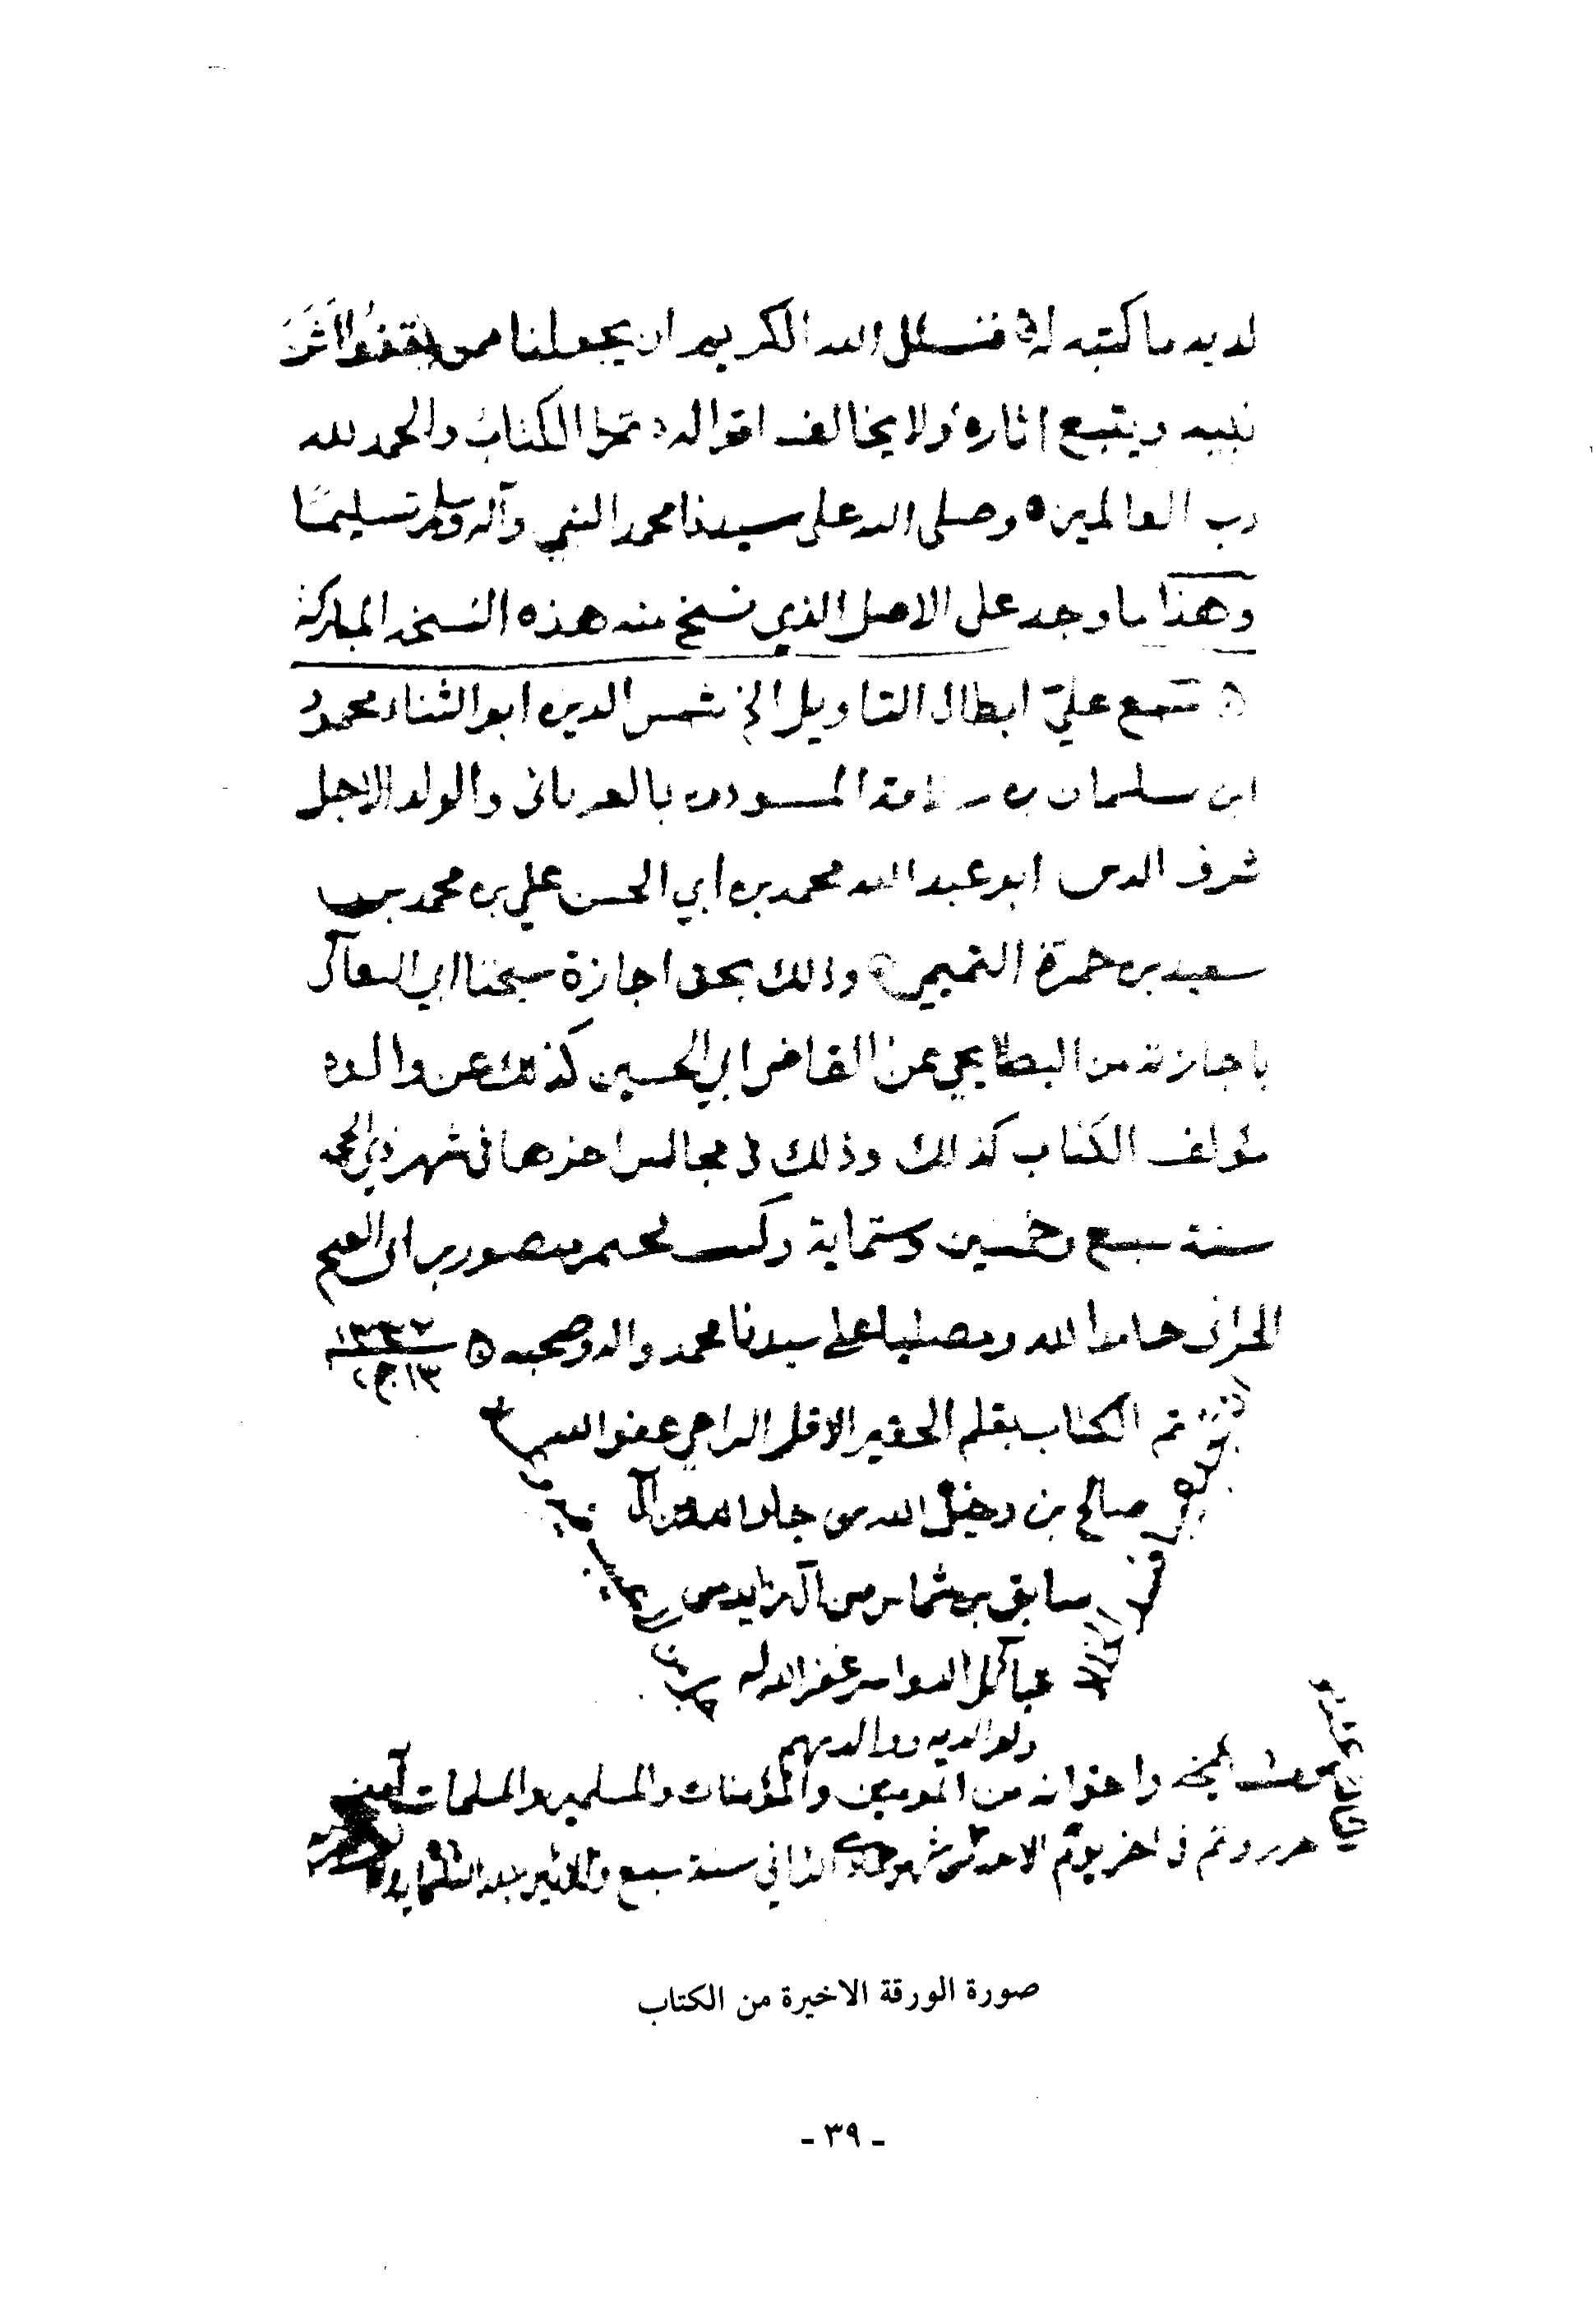 لديه ما كتبه له فنسئل الله الكريم ان يجعلنا ممن يقفوا اثَرَ
نبيه ويتبع اثاره ولا يخالف اقواله تم الكتاب والحمد لله
رب العالمين وصلى الله على سيدنا محمد النبي وآله وسلم تسليمًا
وهذا ما وجد على الاصل الذي نسخ منه هذه النسخة المباركة
سمع عليّ ابطال التاويل الاخ شمس الدين ابو الثناء محمود
ابن سلمان بن والولد الاجل
شرف الدين ابو عبد الله محمد بن ابي الحسن علي بن محمد بن
سعيد بن حمزة التميمي وذلك بحق اجازة شيخنا ابي
باجازته من البطايحي عن القاضي ابي الحسين كذلك عن والده
مؤلف الكتاب كذلك وذلك في مجالس اخرها في شهر ذي الحجة
سنة سبع وخمسين وستماية وكتب منصور بن ابي الفتح
الحراني حامدا لله ومصليا على سيدنا محمد واله وصحبه ١٣٣٧
١٣ ج ٢
تم الكتاب بقلم الحقير الاقل الراجي عفو الله
صالح بن دخيل الله بن جار الله من آل
سابق بن من آل زايد من
آل الدواسر غفر الله له
ولوالديه ووالديهم
واخوانه من المومنين والمؤمنات والمسلمين والمسلمات آمين
حرر وتم في اخر يوم الاحد شهر جمادى الثاني سنة سبع وثلاثين بعد الثلثماية
صورة الورقة الاخيرة من الكتاب
- ٣٩ -